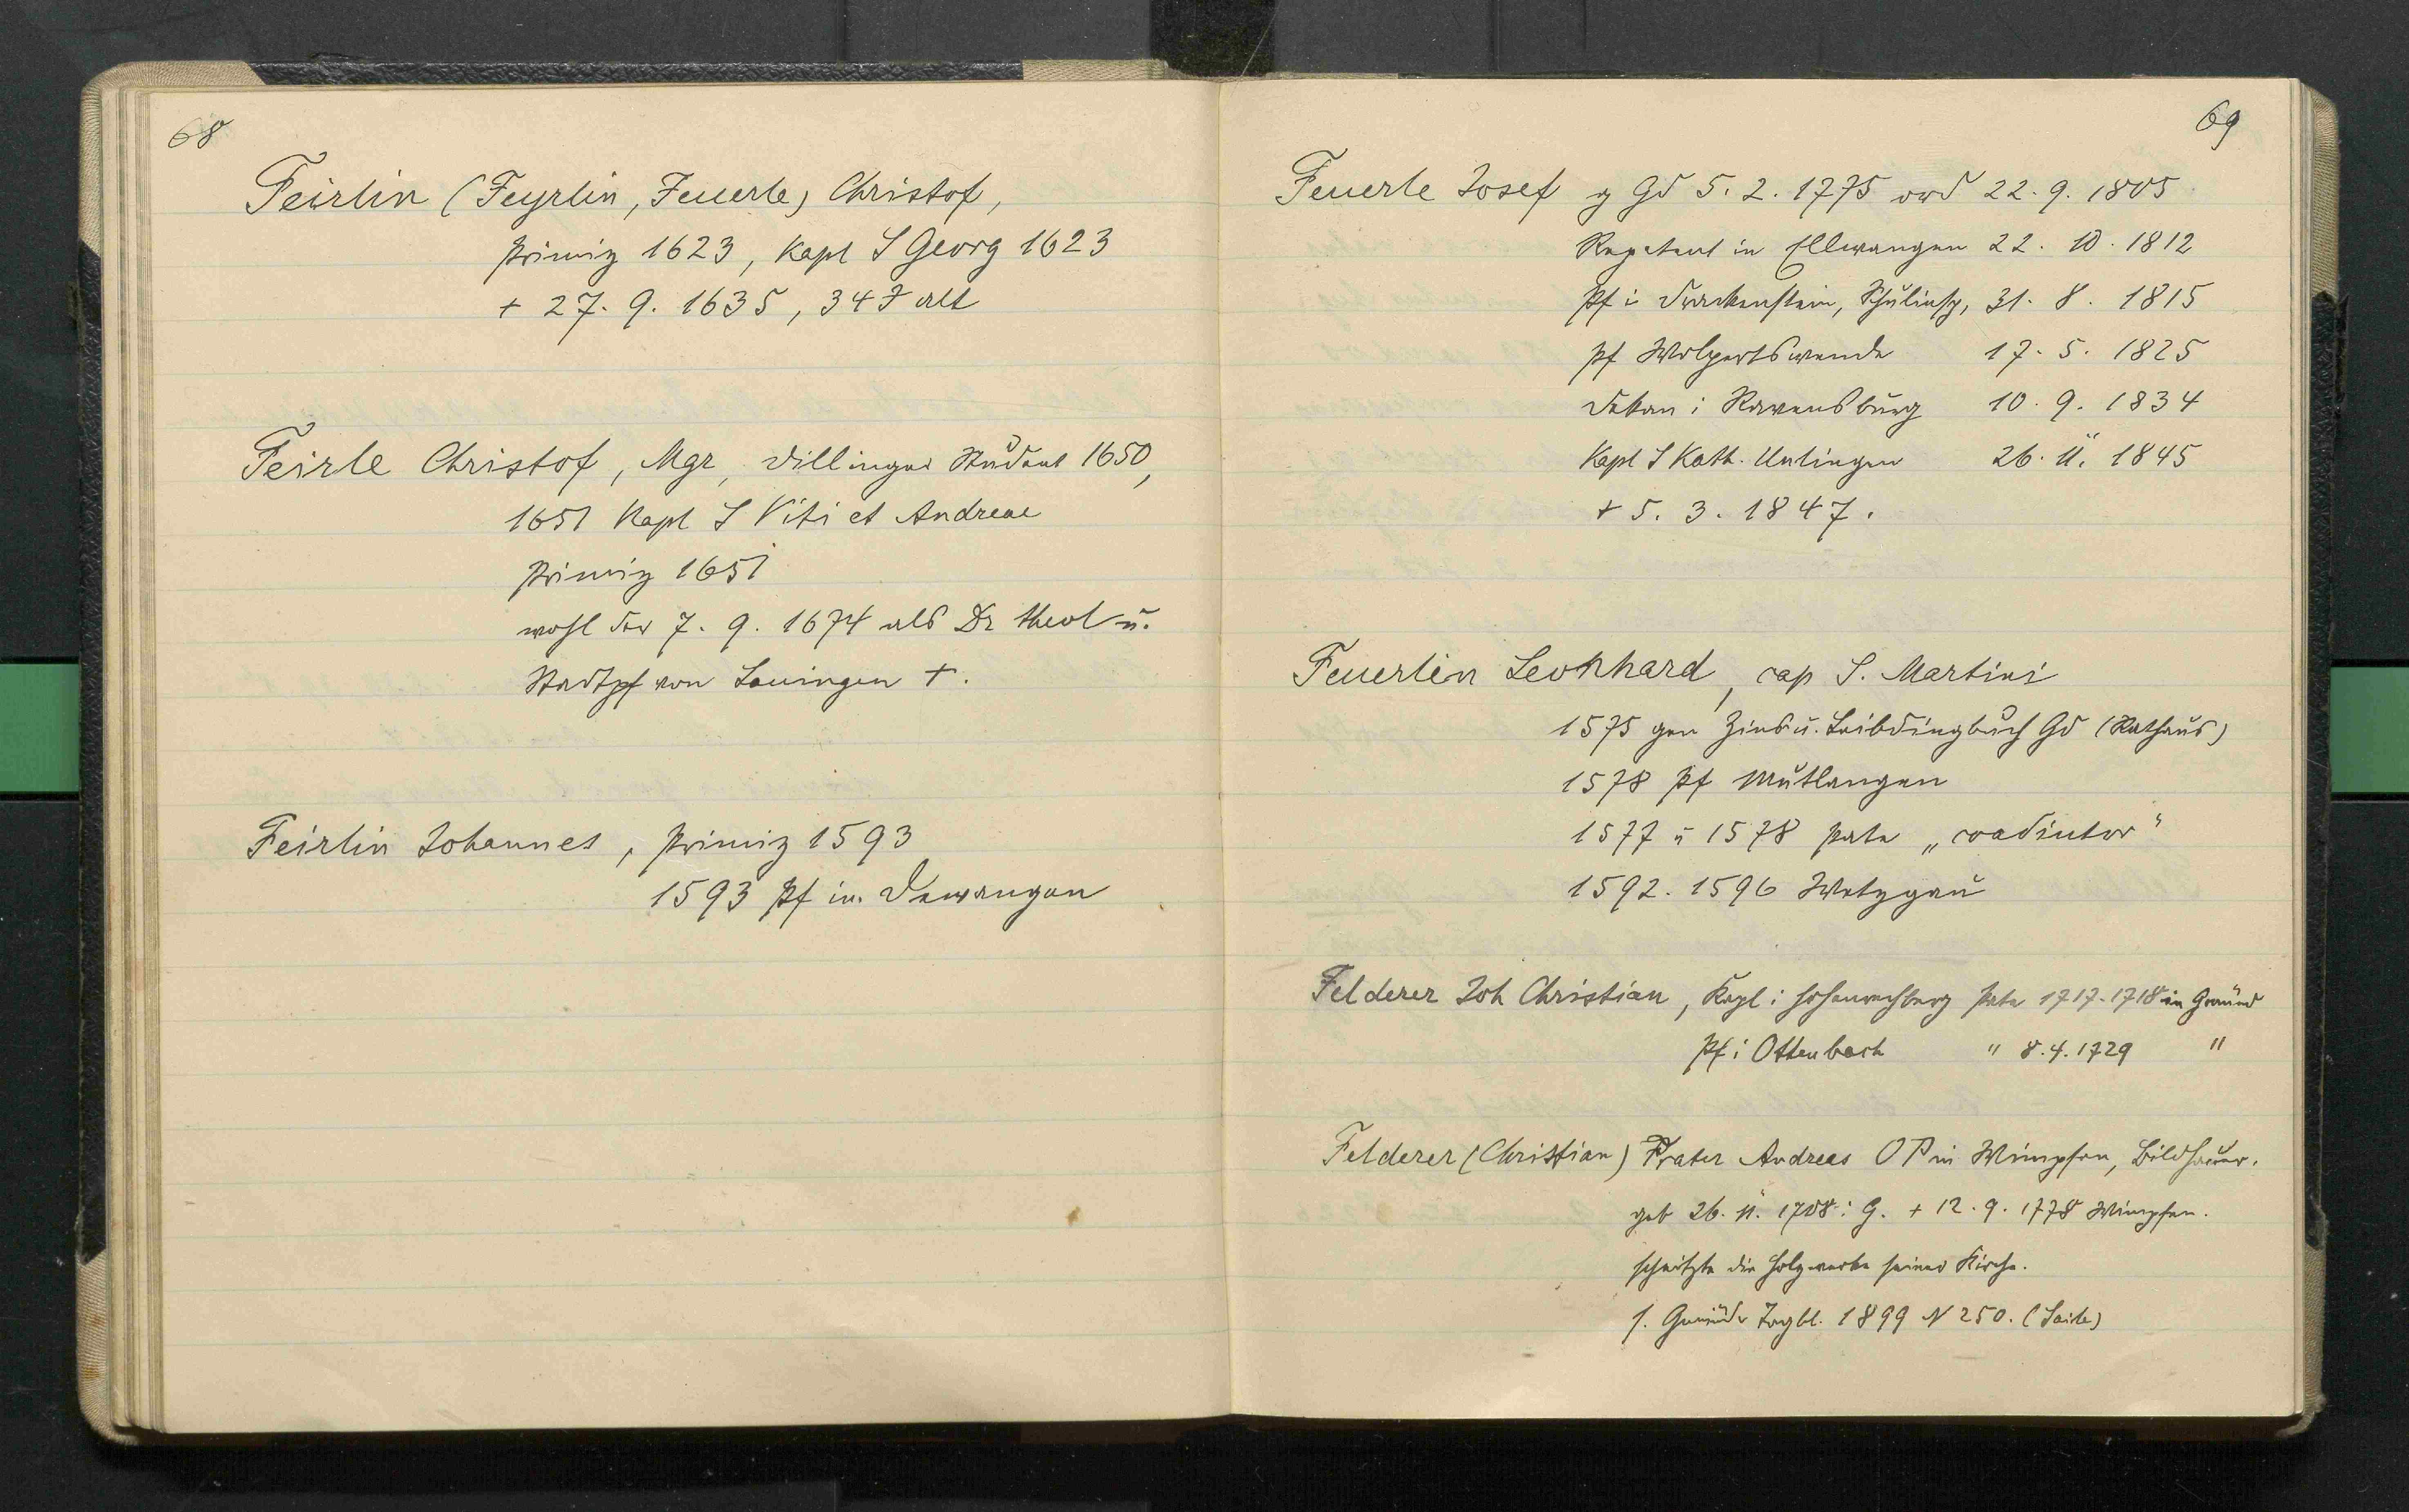 68
Feirlin (Feyrlin, Feuerle) Christof,
Primiz 1623, Kapl S Georg 1623
+ 27. 9. 1635, 34 J alt
Feirle Christof, Mgr, Dillinger Student 1650,
1651 Kapl S Viti et Andreae
Primiz 1651
wohl der 7. 9. 1674 als Dr theol u.
Stadtpf von Lauingen +.
Feirlin Johannes, Primiz 1593
1593 Pf in Dewangen
69
Feuerle Josef g Gd 5. 2. 1775 ord 22. 9. 1805
Repetent in Ellwangen 22. 10. 1812
Pf i Drackenstein, Schulinsp, 31. 8. 1815
Pf Wolpertswende 17. 5. 1825
Dekan i Ravensburg 10. 9. 1834
Kapl S Kath. Unlingen 26. 11. 1845
+ 5. 3. 1847.
Feuerlin Leonhard, cap S. Martini
1575 gen Zins u. Leibdingbuch Gd (Rathaus)
1578 Pf Mutlangen
1577 u 1578 Pate „coadiutor"
1592. 1596 Wetzgau
Felderer Joh Christian, Kapl i Hohenrechberg Pate 1717-1718 in Gmünd
Pf i Ottenbach " 8. 4. 1729 "
Felderer (Christian) Frater Andreas OP in Wimpfen, Bildhauer.
geb 26. 11. 1708 i G. + 12. 9. 1778 Wimpfen.
schnitzte die Holzwerke seiner Kirche.
s. Gmünder Tagbl. 1899 N 250. (Seite)